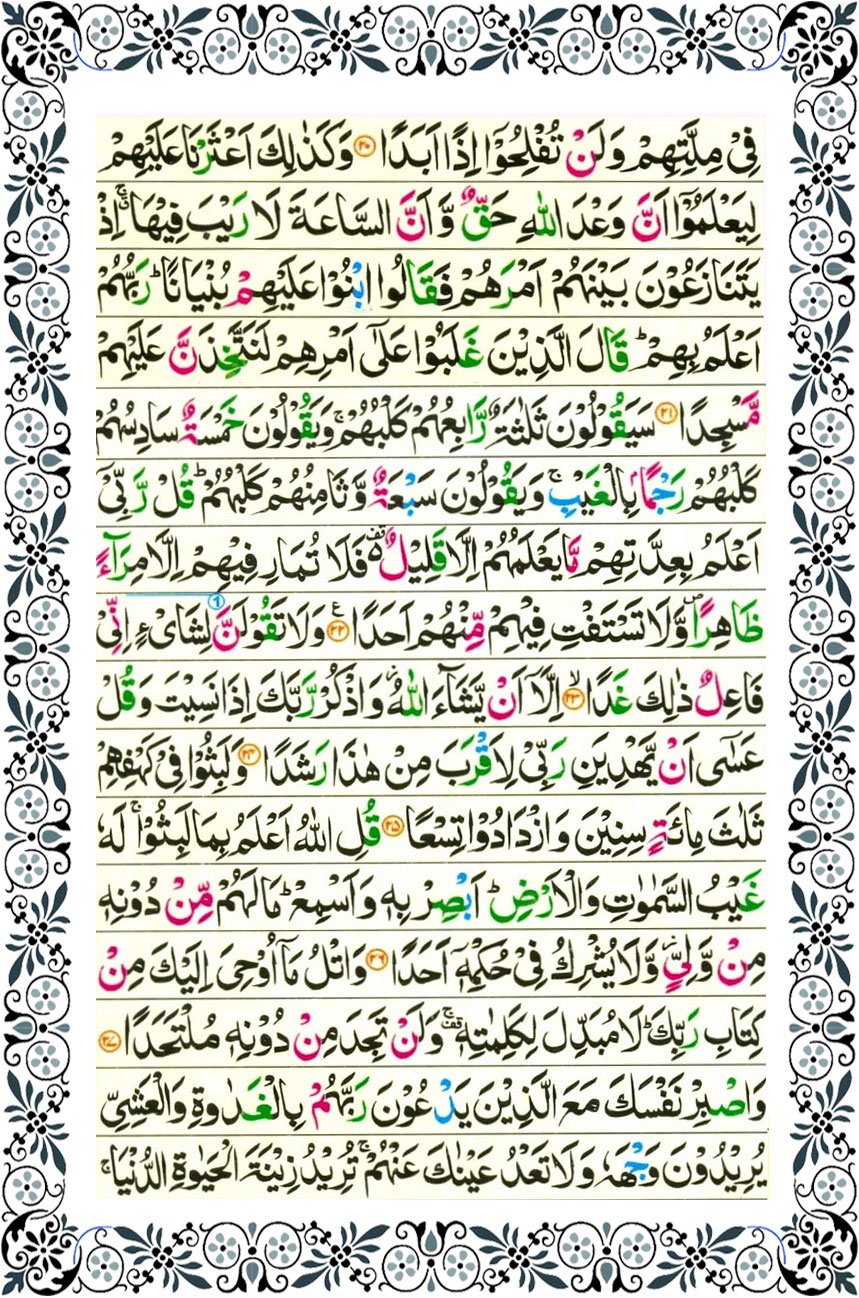 فِىْ مِلَّتِهِمْ وَلَنْ تُفْلِحُوْۤا اِذًا اَبَدًا ۲۰ وَكَذٰلِكَ اَعْثَرْنَا عَلَيْهِمْ
لِيَعْلَمُوْۤا اَنَّ وَعْدَ اللّٰهِ حَقٌّ وَّاَنَّ السَّاعَةَ لَا رَيْبَ فِيْهَا ۚ اِذْ
يَتَنَازَعُوْنَ بَيْنَهُمْ اَمْرَهُمْ فَقَالُوا ابْنُوْا عَلَيْهِمْ بُنْيَانًا ؕ رَبُّهُمْ
اَعْلَمُ بِهِمْ ؕ قَالَ الَّذِيْنَ غَلَبُوْا عَلٰٓى اَمْرِهِمْ لَنَتَّخِذَنَّ عَلَيْهِمْ
مَّسْجِدًا ۲۱ سَيَقُوْلُوْنَ ثَلٰثَةٌ رَّابِعُهُمْ كَلْبُهُمْ ۚ وَيَقُوْلُوْنَ خَمْسَةٌ سَادِسُهُمْ
كَلْبُهُمْ رَجْمًاۢ بِالْغَيْبِ ۚ وَيَقُوْلُوْنَ سَبْعَةٌ وَّثَامِنُهُمْ كَلْبُهُمْ ؕ قُلْ رَّبِّىْۤ
اَعْلَمُ بِعِدَّتِهِمْ مَّا يَعْلَمُهُمْ اِلَّا قَلِيْلٌ ۥ قف فَلَا تُمَارِ فِيْهِمْ اِلَّا مِرَآءً
ظَاهِرًا ۪ وَّلَا تَسْتَفْتِ فِيْهِمْ مِّنْهُمْ اَحَدًا ۲۲ ع وَلَا تَقُوْلَنَّ ① لِشَاىْءٍ اِنِّىْ
فَاعِلٌ ذٰلِكَ غَدًا ۙ ۲۳ اِلَّاۤ اَنْ يَّشَآءَ اللّٰهُ ؗ وَاذْكُرْ رَّبَّكَ اِذَا نَسِيْتَ وَقُلْ
عَسٰٓى اَنْ يَّهْدِيَنِ رَبِّىْ لِاَقْرَبَ مِنْ هٰذَا رَشَدًا ۲۴ وَلَبِثُوْا فِىْ كَهْفِهِمْ
ثَلٰثَ مِائَةٍ سِنِيْنَ وَازْدَادُوْا تِسْعًا ۲۵ قُلِ اللّٰهُ اَعْلَمُ بِمَا لَبِثُوْا ۚ لَهٗ
غَيْبُ السَّمٰوٰتِ وَالْاَرْضِ ؕ اَبْصِرْ بِهٖ وَاَسْمِعْ ؕ مَا لَهُمْ مِّنْ دُوْنِهٖ
مِنْ وَّلِىٍّ ؗ وَّلَا يُشْرِكُ فِىْ حُكْمِهٖۤ اَحَدًا ۲۶ وَاتْلُ مَاۤ اُوْحِىَ اِلَيْكَ مِنْ
كِتَابِ رَبِّكَ ؕ لَا مُبَدِّلَ لِكَلِمٰتِهٖ ۚ قف وَلَنْ تَجِدَ مِنْ دُوْنِهٖ مُلْتَحَدًا ۲۷
وَاصْبِرْ نَفْسَكَ مَعَ الَّذِيْنَ يَدْعُوْنَ رَبَّهُمْ بِالْغَدٰوةِ وَالْعَشِىِّ
يُرِيْدُوْنَ وَجْهَهٗ وَلَا تَعْدُ عَيْنٰكَ عَنْهُمْ ۚ تُرِيْدُ زِيْنَةَ الْحَيٰوةِ الدُّنْيَا ۚ